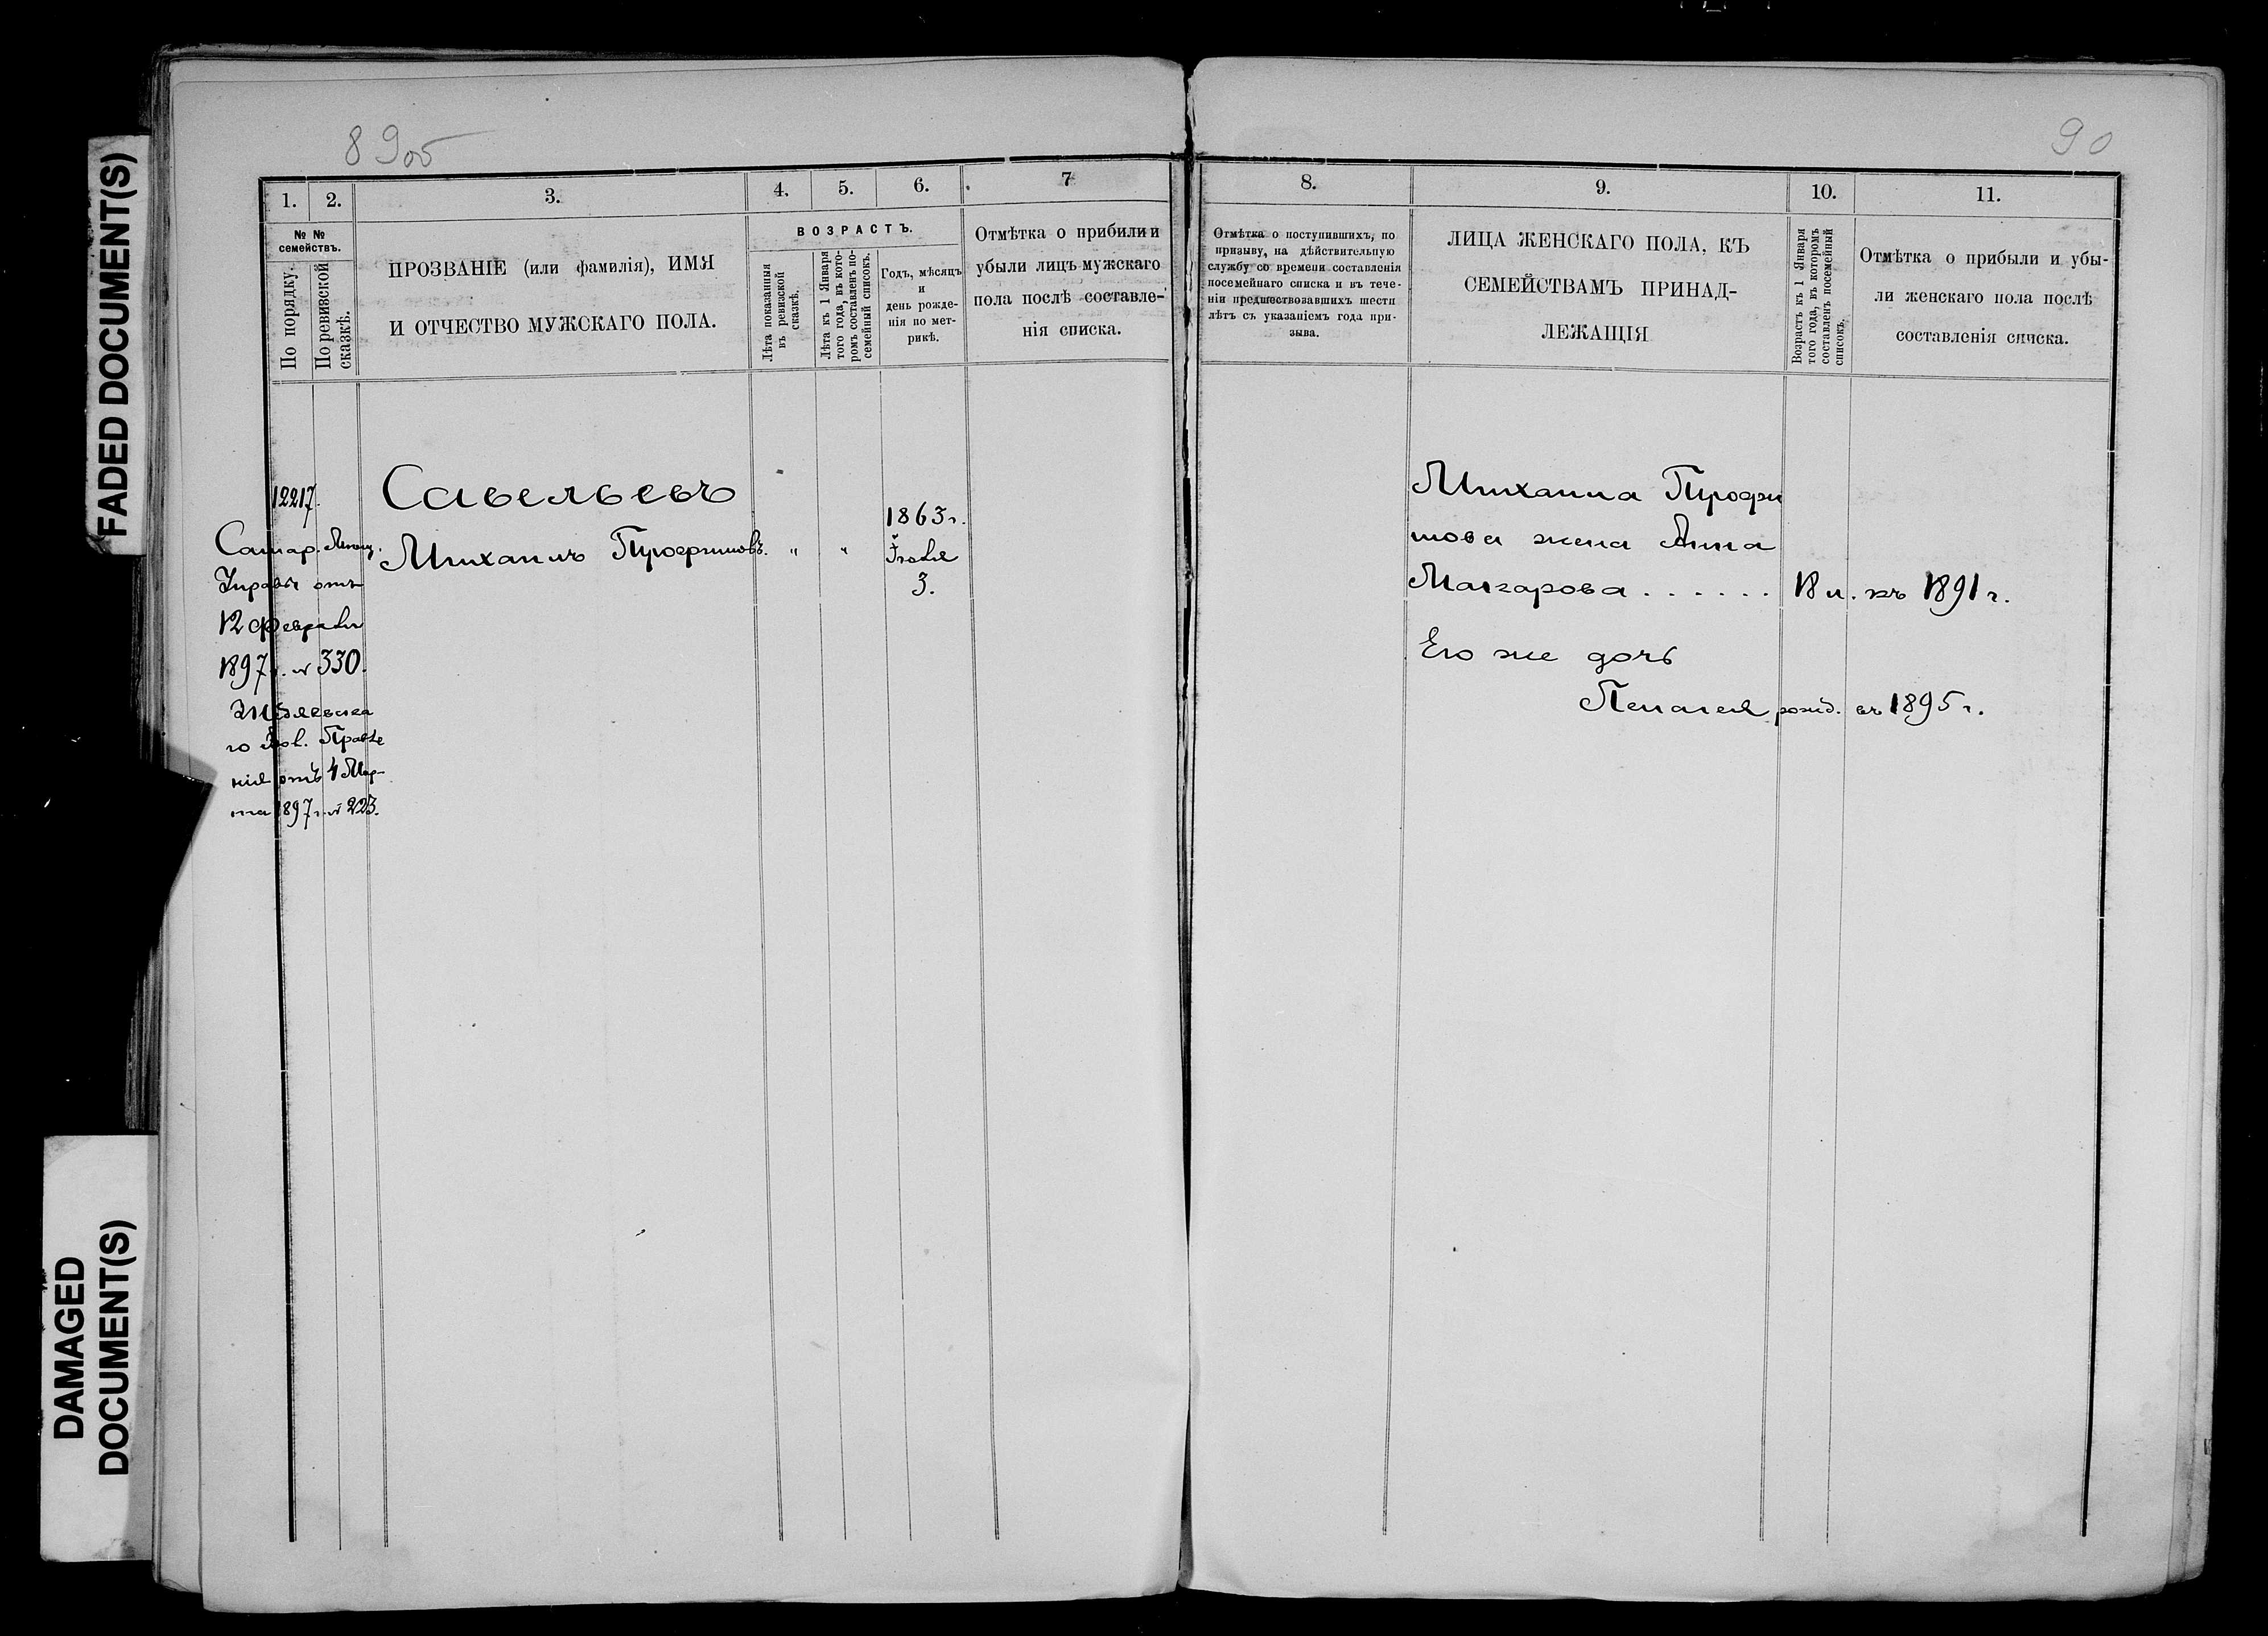 FADED DOCUMENT(S)
DAMAGED
DOCUMENT(S)
89об
1.
2.
3.
4.
5.
6.
7
№ №
семействъ.
По порядку.
По ревизской
сказкѣ.
ПРОЗВАНІЕ (или фамилія), ИМЯ
И ОТЧЕСТВО МУЖСКАГО ПОЛА.
ВОЗРАСТЪ.
Лѣта показанныя
въ ревизской
сказкѣ.
Лѣта къ 1 Января
того года, въ кото-
ромъ составленъ по-
семейный списокъ.
Годъ, мѣсяцъ
и
день рожде-
нія по мет-
рикѣ.
Отмѣтка о прибили и
убыли лицъ мужскаго
пола послѣ составле-
нія списка.
12217.
Самар. Мѣщ.
Управы отъ
12 Февраля
1897 г. № 330.
го Вол. Правле
нія отъ 4 Мар-
та 1897 г. № 223.
Савельевъ
Михаилъ Трофимовъ. " "
1863 г.
Іюля
3.
90
8.
9.
10.
11.
Отмѣтка о поступившихъ, по
призыву, на дѣйствительную
службу со времени составленія
посемейнаго списка и въ тече-
ніи предшествовавшихъ шести
лѣтъ съ указаніемъ года при-
зыва.
ЛИЦА ЖЕНСКАГО ПОЛА, КЪ
СЕМЕЙСТВАМЪ ПРИНАД-
ЛЕЖАЩІЯ
Возрастъ къ 1 Января
того года, въ которомъ
составленъ посемейный
списокъ.
Отмѣтка о прибыли и убы-
ли женскаго пола послѣ
составленія списка.
Михаила Трофи
мова жена Анна
Макарова . . . . . . 18 л. къ 1891 г.
Его же дочь
Пелагея рожд. въ 1895 г.